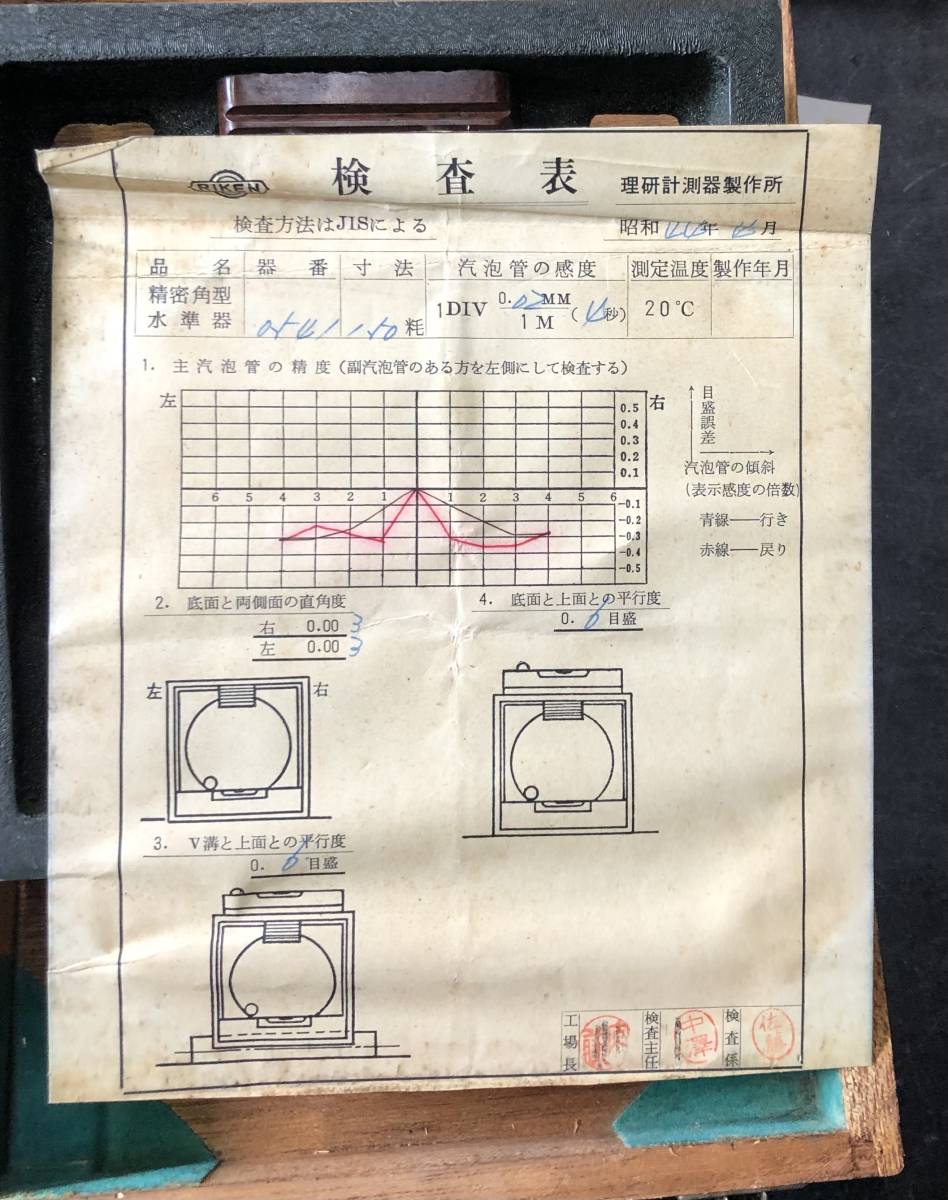 RIKEN 検査表 理研計測器製作所
検査方法はJISによる 昭和44年4月
品名 器番 寸法 汽泡管の感度 測定温度 製作年月
精密角型水準器 0541 150粍 1DIV 0.02MM/1M (4秒) 20℃
1. 主汽泡管の精度(副汽泡管のある方を左側にして検査する)
左 右
0.5
0.4
0.3
0.2
0.1
6 5 4 3 2 1 1 2 3 4 5 6
-0.1
-0.2
-0.3
-0.4
-0.5
↑目盛誤差
汽泡管の傾斜
(表示感度の倍数)
青線——行き
赤線——戻り
2. 底面と両側面の直角度
右 0.003
左 0.003
左 右
4. 底面と上面との平行度
0.6目盛
3. V溝と上面との平行度
0.6目盛
工場長 検査主任 中澤 検査係 佐藤